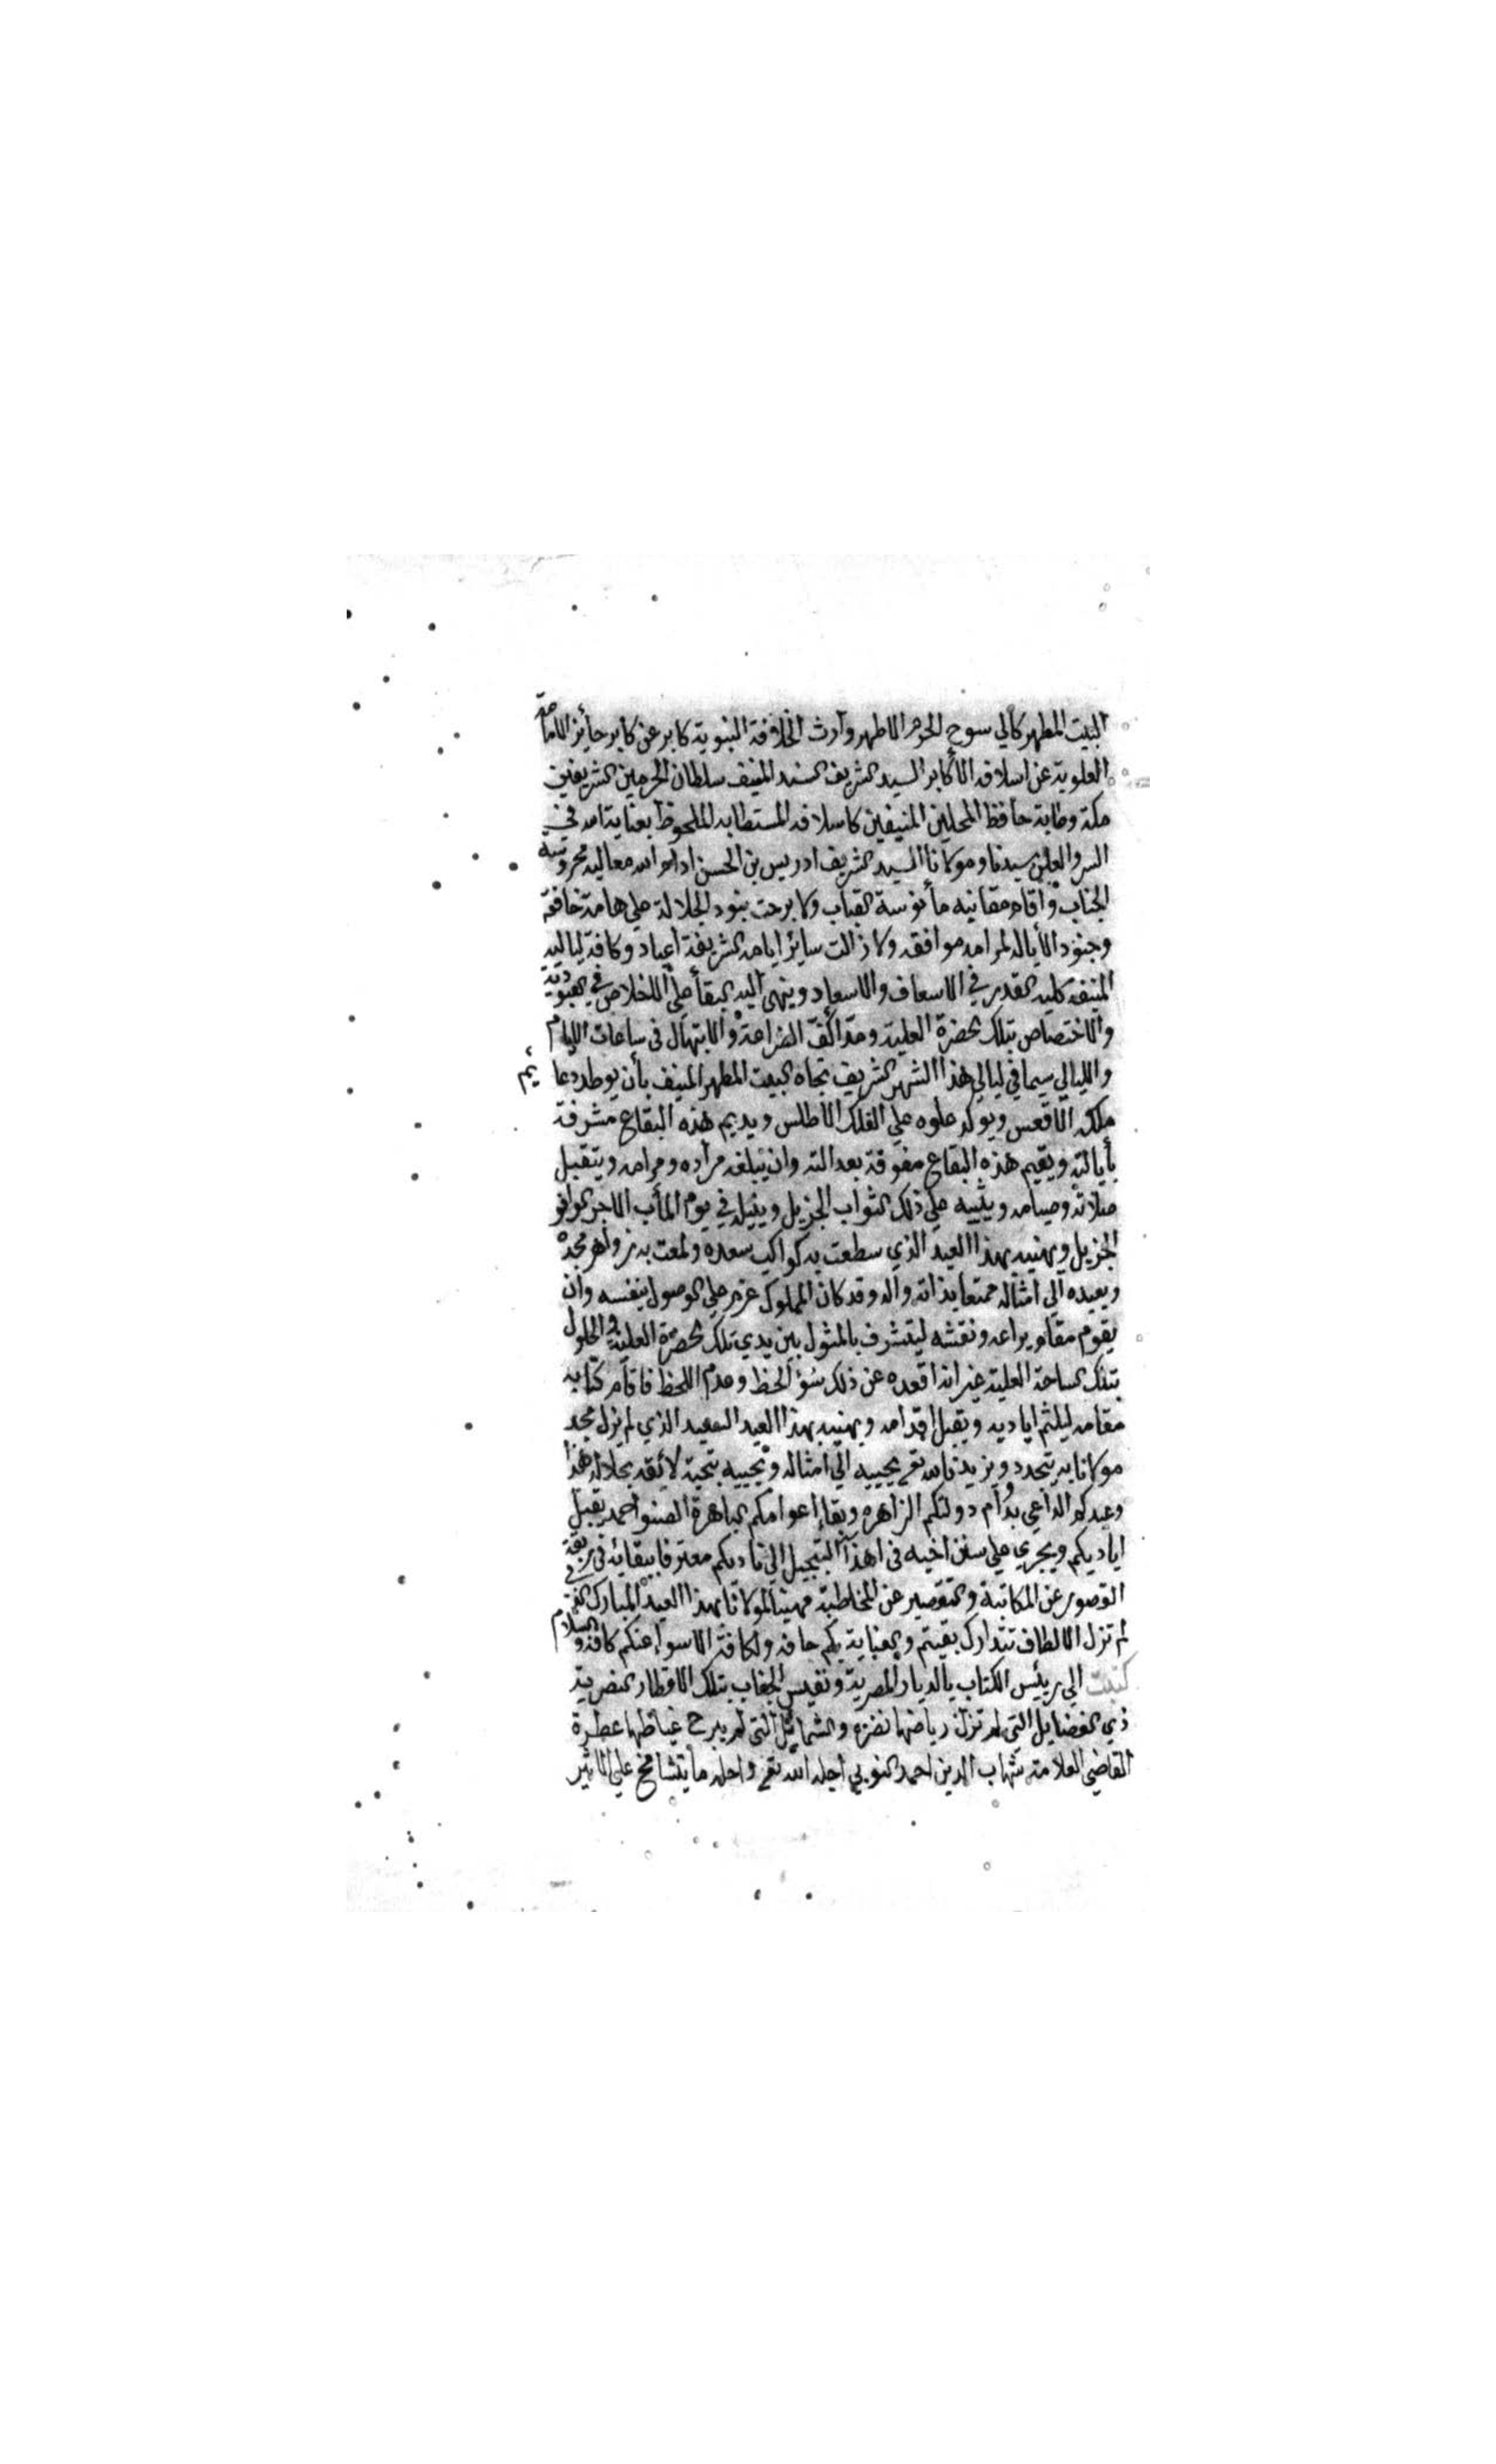 البيت المطهر كالي سوح الحرم الاطهر وارث الخلافة النبوية كابر عن كابر حائز الامامة
العلوية عن اسلافه الأكابر السيد الشريف السند المنيف سلطان الحرمين الشريفين
مكة وطابة حافظ المحلين المنيفين كاسلافه المستطابه الملحوظ بعناية الله في
السر والعلن سيدنا ومولانا السيد الشريف ادريس بن الحسن ادام الله معاليه محروسة
الجناب واقام مقانيه مأنوسة القباب ولا برحت بنود الجلالة على هامته خافقه
وجنود الأياله لمرامه موافقه ولا زالت سائر ايامه الشريفة اعياد وكافة لياليه
المنيفه كليلة القدر في الاسعاف والاسعاد وينهى اليه البقأ على الاخلاص في العبودية
والاختصاص بتلك الحضرة العلية ومد اكف الضراعة والابتهال في ساعات الايام
والليالي سيما في ليالي هذا الشهر الشريف تجاه البيت المطهر المنيف بأن يوطد دعائم
ملكه الاقعس ويوكد علوه على الفلك الاطلس ويديم هذه البقاع مشرفة
بأيالته ويقيم هذه البقاع مفوقة بعدالته وان يبلغه مراده ومرامه ويتقبل
صلاته وصيامه ويثيبه على ذلك الثواب الجزيل وينيله في يوم المأب الاجر الوافر
الجزيل ويهنيه بهذا العيد الذي سطعت به كواكب سعده ولمعت به زواهر مجده
ويعيده الي امثاله ممتعا بذاته واله وقد كان المملوك عزم على الوصول بنفسه وان
يقوم مقام يراعه ونقشه ليتشرف بالمثول بين يدي تلك الحضرة العلية والحلول
بتلك الساحة العلية غير انه اقعده عن ذلك سؤ الحظ وعدم اللحظ فاقام كتابه
مقامه ليلثم اياديه ويقبل اقدامه ويهنيه بهذا العيد السعيد الذي لم يزل مجد
مولانا به يتجدد ويزيد فالله تعالى يحييه الي امثاله ويحييه بتحية لائقه بجلاله هذا
وعبدكم الداعي بدوام دولتكم الزاهرة وبقاء اعوامكم الباهرة الصنو احمد يقبل
اياديكم ويجري على سنن اخيه في اهداء التبجيل الي ناديكم معترفا ببقائه في ربقة
القصور عن المكاتبة والتقصير عن المخاطبة مهنيا لمولانا بهذا العيد المبارك الذي
لم تزل الالطاف تتدارك بقيتم والعناية بكم حافه ولكافة الاسواء عنكم كافه والسلام
كتبت الي رييس الكتاب بالديار المصرية ونفيس الجناب بتلك الاقطار النضرية
ذي الفضايل التي لم تزل رياضها نضرة والشمائل التي لم يبرح غياظها عطرة
القاضي العلامة شهاب الدين احمد النوبي اجله الله تعالى واحله ما يتشامخ على الاثير